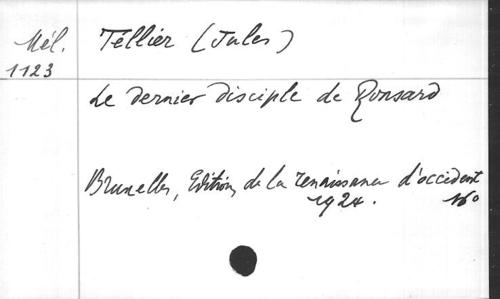 Mél. Téllier (Jules)
1123
Le dernier disciple de Ronsard
Bruxelles, Editions de la renaissance d'occident
1924. 16°